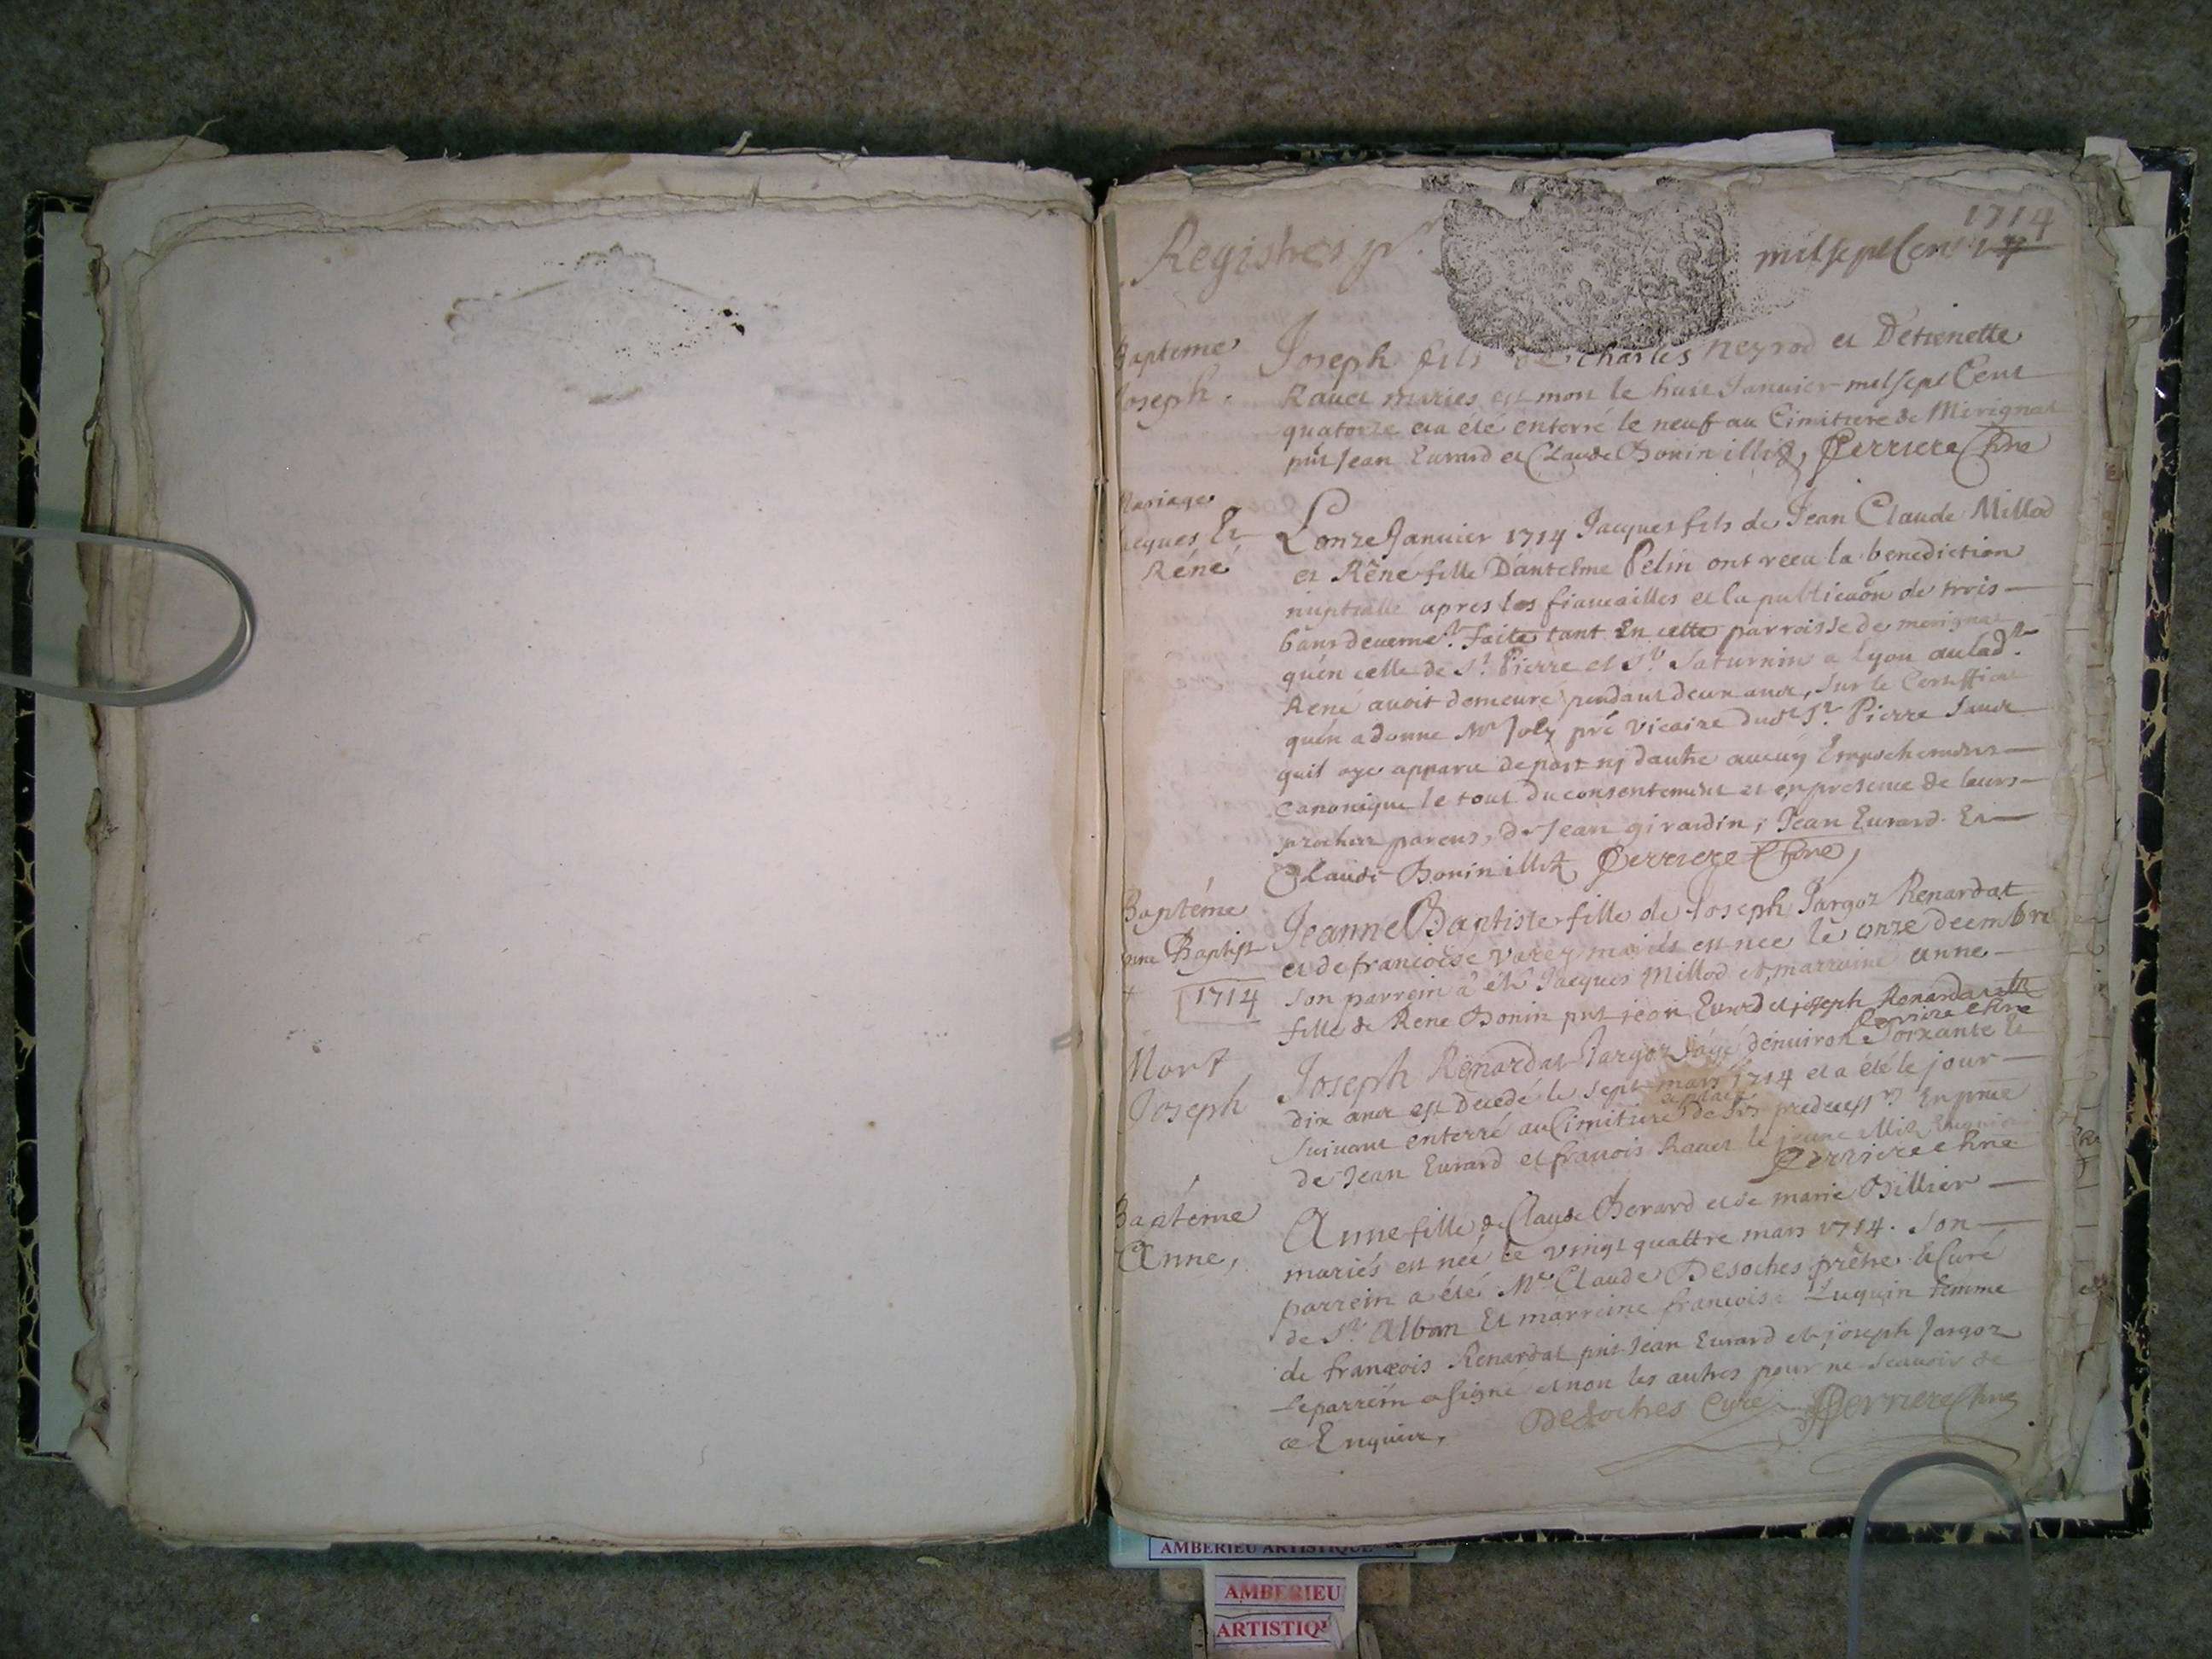 1714
Registres pr mil sept Cens 14
Bapteme
Joseph.
Joseph fils de Charles Neyrod et Détienette
Ravet mariés est mort le huit Janvier mil sept Cent
quatorze et a été enterré le neuf au Cimitiere de Mérignat
pnt Jean Evrard et Claude Bonin illit, Perriere Chne
Mariage
Jacques Et
Réné
Lonze Janvier 1714 Jacques fils de Jean Claude Millod
et Réné fille Dantelme Pelin ont receu la benediction
nuptialle apres les fiancailles et la publicaon de trois
bans deuemt. faite tant En cette parroisse de merignat
quén celle de St. Pierre et St. Saturnin a Lyon ou lade.
René avoit demeuré pendant deux ans, sur le Certifficat
quén a donne Mr Joly pré Vicaire dudt St. Pierre sans
quil aye apparu de part ny dautre aucuy Empechement
Canonique le tout du consentement et en presence de leurs
proches parens, de Jean girardin, Jean Evrard Et
Claude Bonin illit. Perriere Chne,
Baptéme
Jeanne Baptiste
1714
Jeanne Baptiste fille de Joseph Jargoz Renardat
et de francoise Varey mariés est née le onze decembre
son parrein à été Jacques Millod et marraine anne
fille de Rene Bonin pnt jean Evrard et joseph Renardat illit
Perriere Chne
Mort
Joseph
Joseph Renardat Jargoz âgé dénuiron Soixante le
dix ans est Decedé le sept mars 1714 et a été le jour
suivant enterré au Cimitiere de ses predecessrs En pnce
de Jean Evrard et francois Ravet le jeune illit
Perriere Chne
Baptéme
Anne,
Anne fille de Claude Berard et de marie Billier
mariés est neé le vingt quattre mars 1714. son
parrein a été Mre Claude Desoches prêtre et Curé
de St. Alban Et marreine francoise Luquin femme
de francois Renardat pnt Jean Evrard et joseph Jargoz
le parrein a signé et non les autres pour ne scauoir de
ce Enquis, Desoches Curé Perriere Chne
AMBERIEU ARTISTIQUE
AMBERIEU
ARTISTIQU